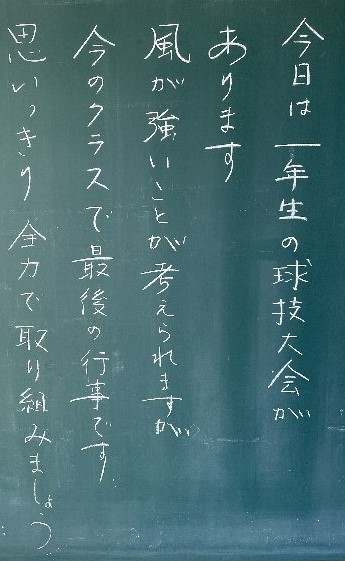 今日は一年生の球技大会が
あります
風が強いことが考えられますが、
今のクラスで最後の行事です
思いっきり 全力で取り組みましょう